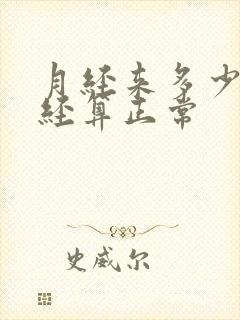 月经来多少
经算正常
史威尔